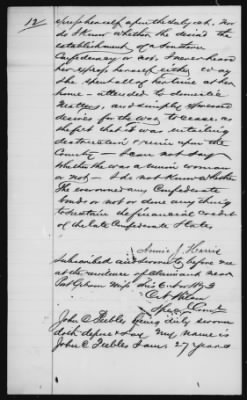 12
express herself upon the subject. Nor
do I know whether she desired the
establishment of a Southern
Confederacy or not. I never heard
her express herself either way
She spent all her time at her
home — attended to domestic
matters, and simply expressed
desires for the war to cease, as
the fact that it was entailing
destruction & ruin upon the
Country — I can not say
whether she was a union woman
or not — I do not know whether
she ever owned any Confederate
bonds or not or done any thing
to sustain the financial credit
of the late Confederate States
Annie J. Harris
Subscribed and sworn to before me
at the residence of claimant near
Port Gibson Miss this 6 Nov 1873
Spec Com
John C Peebles being duly sworn
doth depose & say My name is
John C. Peebles I am 27 years